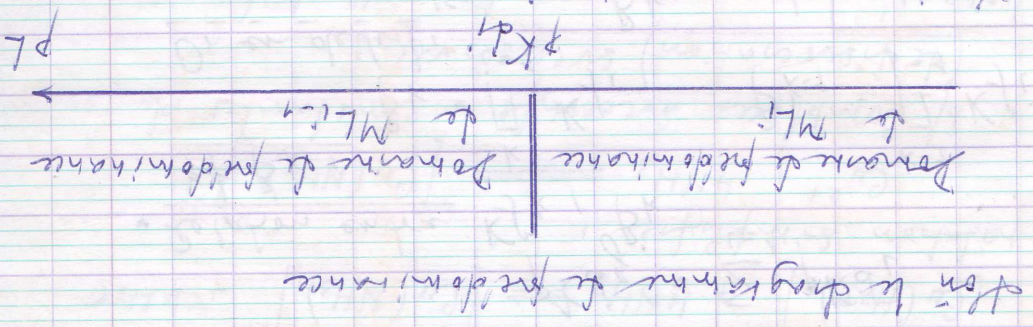 d'où le diagramme de prédominance
Domaine de prédominance Domaine de prédominance
de MLi de MLi-1
pKdi pL